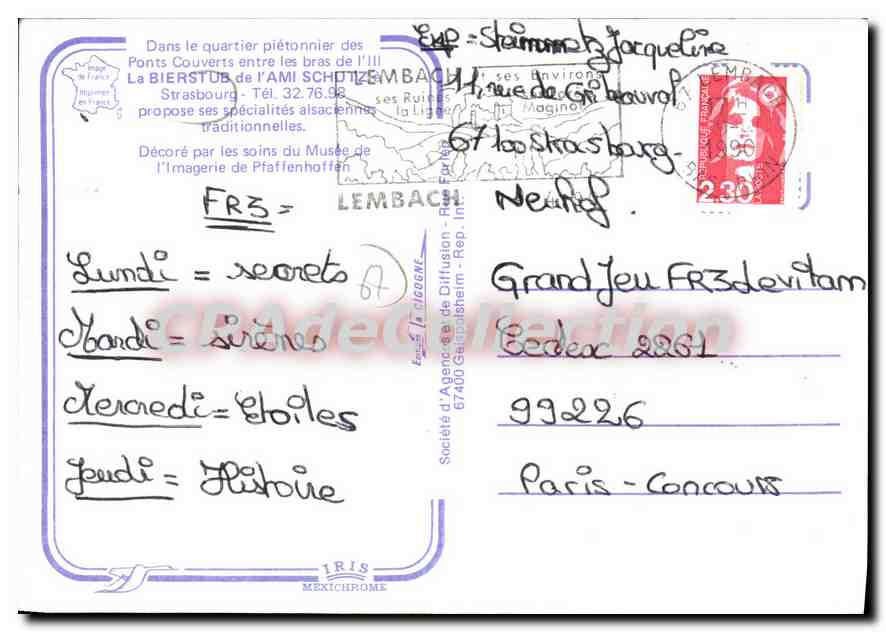 Dans le quartier piétonnier des
Ponts Couverts entre les bras de l'Ill
La BIERSTUB de l'AMI SCHUTZ
Strasbourg - Tél. 32.76.98
propose ses spécialités alsaciennes
traditionnelles.
Décoré par les soins du Musée de
l'Imagerie de Pfaffenhoffen
Image
de France
Imprimée
en France
Exp = Steinmetz Jacqueline
11, rue de
67100 Strasbourg-
Neuhof.
LEMBACH et ses Environs
ses Ruines
la Ligne Maginot
LEMBACH
LEMBACH
1990
RHIN
REPUBLIQUE FRANÇAISE
2,30
LA POSTE
FR3 =
Lundi = secrets
Mardi = sirènes
Mercredi = Etoiles
Jeudi = Histoire
67
Grand Jeu FR3 devitam
Cedex 2261
99226
Paris - Concours
Editions La CIGOGNE
Société d'Agences et de Diffusion - Rue
67400 Geispolsheim - Rep. Int.
IRIS
MEXICHROME
CPAdeCollection